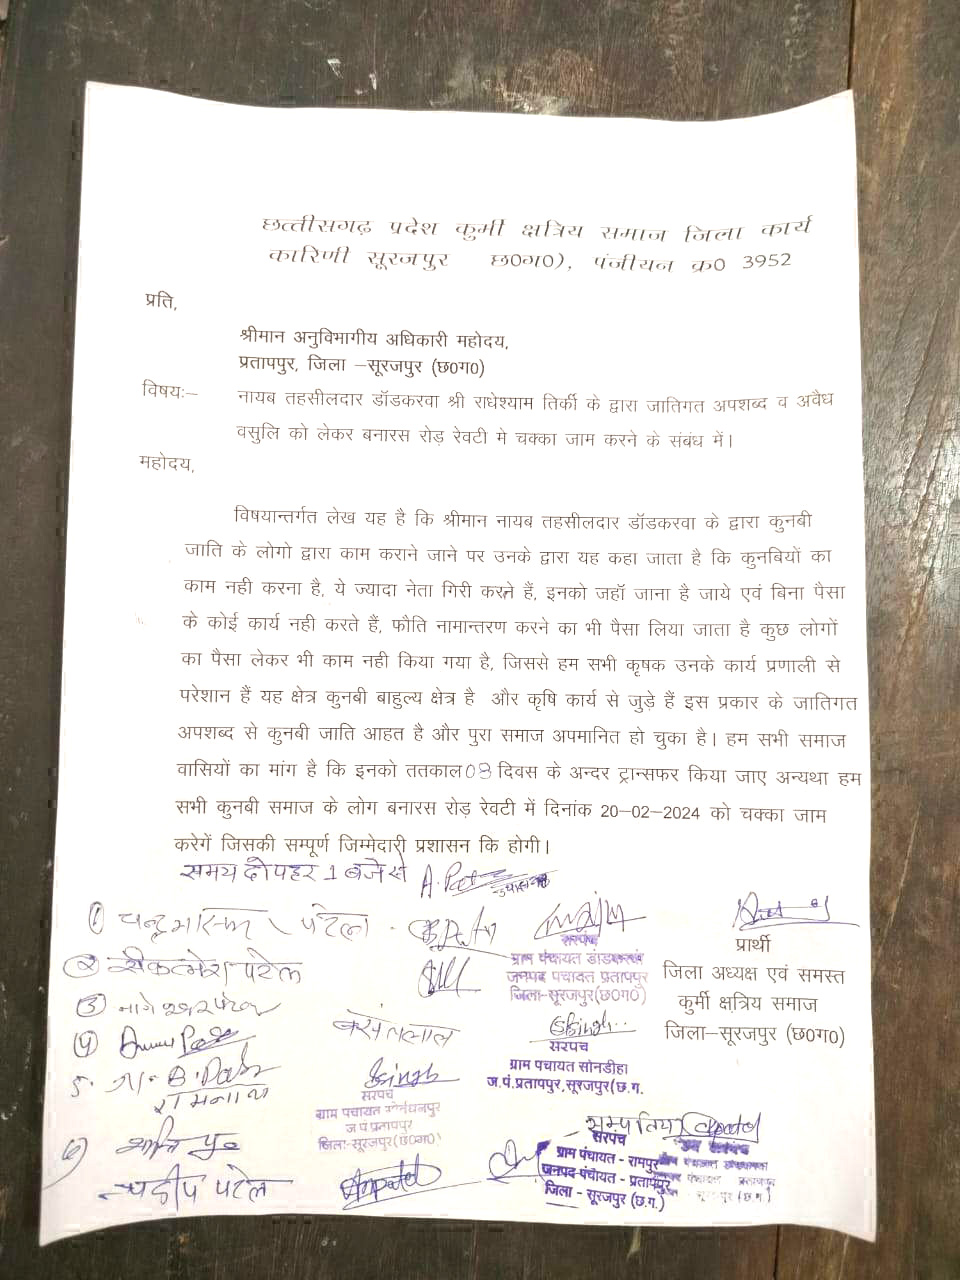 छत्तीसगढ़ प्रदेश कुर्मी क्षत्रिय समाज जिला कार्य
कारिणी सूरजपुर छ0ग0), पंजीयन क्र0 3952
प्रति,
श्रीमान अनुविभागीय अधिकारी महोदय,
प्रतापपुर, जिला –सूरजपुर (छ0ग0)
विषयः– नायब तहसीलदार डॉडकरवा श्री राधेश्याम तिर्की के द्वारा जातिगत अपशब्द व अवैध
वसुलि को लेकर बनारस रोड़ रेवटी मे चक्का जाम करने के संबंध में।
महोदय,
विषयान्तर्गत लेख यह है कि श्रीमान नायब तहसीलदार डॉडकरवा के द्वारा कुनबी
जाति के लोगो द्वारा काम कराने जाने पर उनके द्वारा यह कहा जाता है कि कुनबियों का
काम नही करना है, ये ज्यादा नेता गिरी करते हैं, इनको जहॉ जाना है जाये एवं बिना पैसा
के कोई कार्य नही करते हैं, फौति नामान्तरण करने का भी पैसा लिया जाता है कुछ लोगों
का पैसा लेकर भी काम नही किया गया है, जिससे हम सभी कृषक उनके कार्य प्रणाली से
परेशान हैं यह क्षेत्र कुनबी बाहुल्य क्षेत्र है और कृषि कार्य से जुड़े हैं इस प्रकार के जातिगत
अपशब्द से कुनबी जाति आहत है और पुरा समाज अपमानित हो चुका है। हम सभी समाज
वासियों का मांग है कि इनको ततकाल 08 दिवस के अन्दर ट्रान्सफर किया जाए अन्यथा हम
सभी कुनबी समाज के लोग बनारस रोड़ रेवटी में दिनांक 20–02–2024 को चक्का जाम
करेगें जिसकी सम्पूर्ण जिम्मेदारी प्रशासन कि होगी।
समय दोपहर 1 बजे से
प्रार्थी
जिला अध्यक्ष एवं समस्त
कुर्मी क्षत्रिय समाज
जिला–सूरजपुर (छ0ग0)
सरपंच
ग्राम पंचायत
जनपद पंचायत प्रतापपुर
जिला-सूरजपुर(छ0ग0)
पटेल
पटेल
Singh
सरपंच
ग्राम पंचायत सोनडीहा
ज.पं.प्रतापपुर,सूरजपुर(छ.ग.
रामनाथ
Singh
सरपंच
ग्राम पंचायत
ज.पं प्रतापपुर
जिला-सूरजपुर(छ0ग0)
सरपंच
ग्राम पंचायत - रामपुर
जनपद-पंचायत - प्रतापपुर
जिला - सूरजपुर (छ.ग.)
पटेल